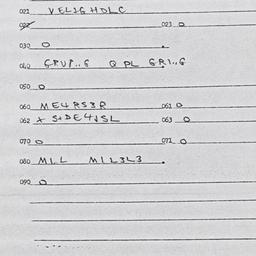 021 VEL36 HDLC
022 023 0
030 0
040 GPUP..G Q PL GRI..G
050 0
060 ME4RS3R 061 0
062 X S+DE4JSL 063 0
070 0 071 0
080 MLL MIL3L3
090 0